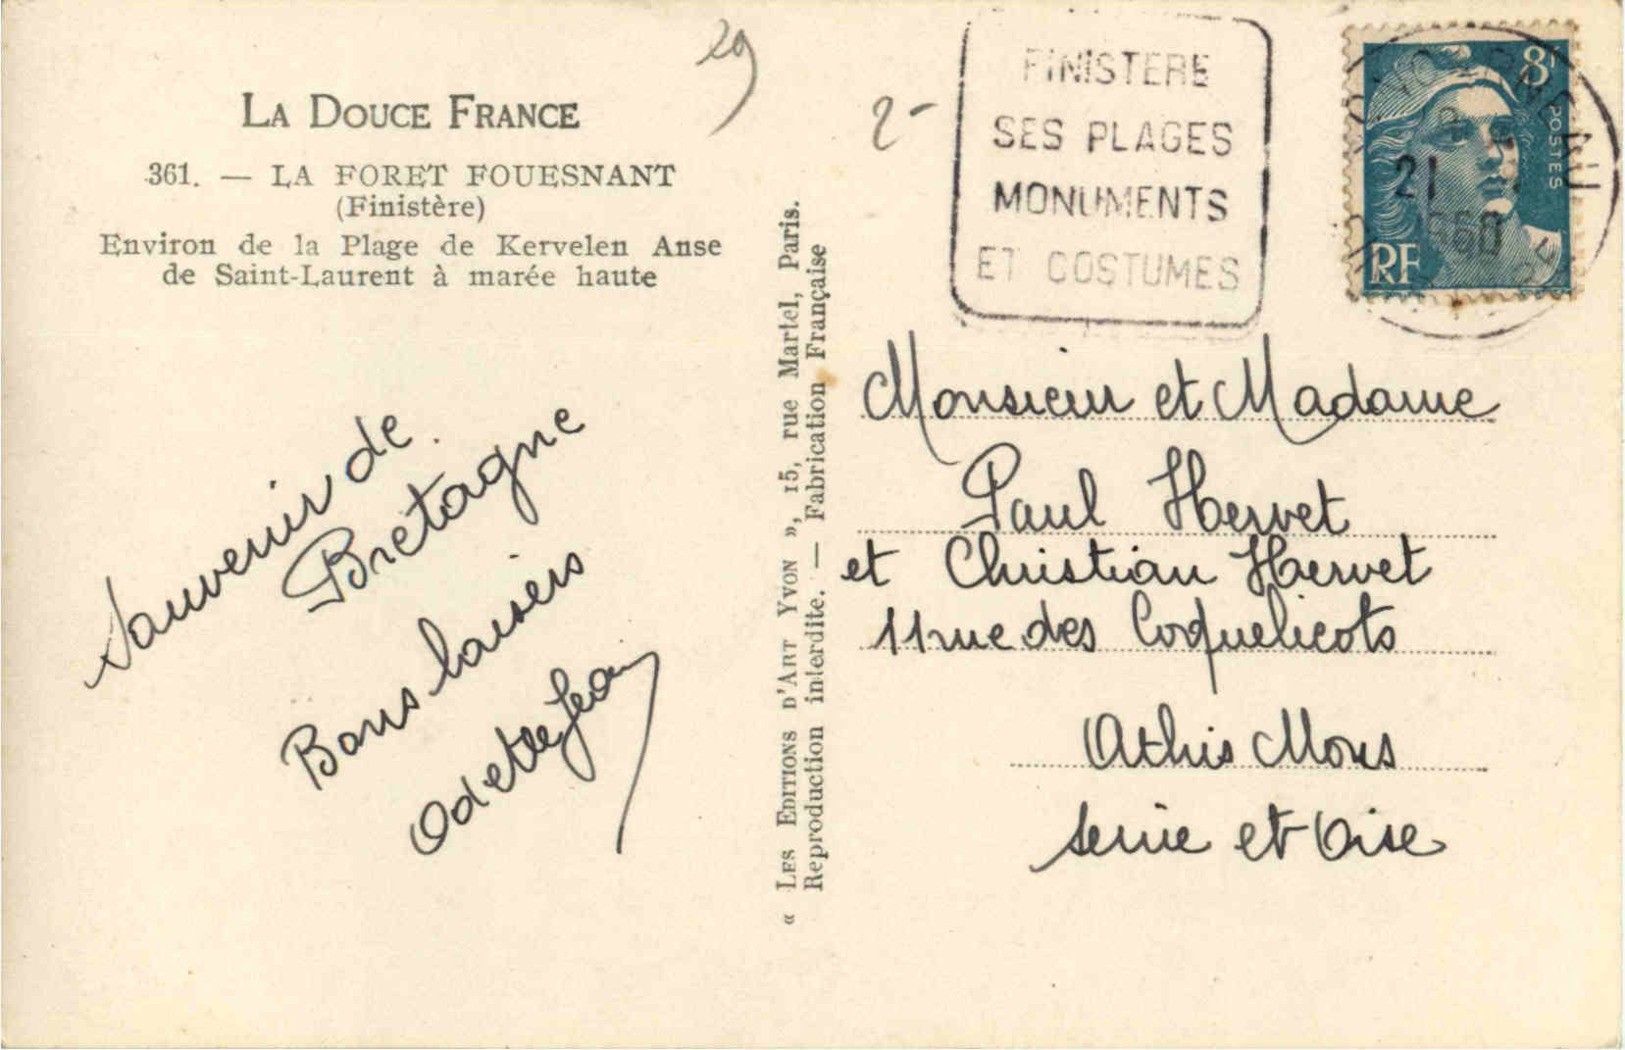 29
LA DOUCE FRANCE
361. — LA FORET FOUESNANT
(Finistère)
Environ de la Plage de Kervelen Anse
de Saint-Laurent à marée haute
Souvenir de
Bretagne
Bons baisers
Odette Jean
« LES EDITIONS D'ART YVON », 15, rue Martel, Paris.
Reproduction interdite. — Fabrication Française
2-
FINISTERE
SES PLAGES
MONUMENTS
ET COSTUMES
8F
POSTES
RF
21
Monsieur et Madame
Paul Hervet
et Christian Hervet
11 rue des Coquelicots
Athis Mons
Seine et Oise